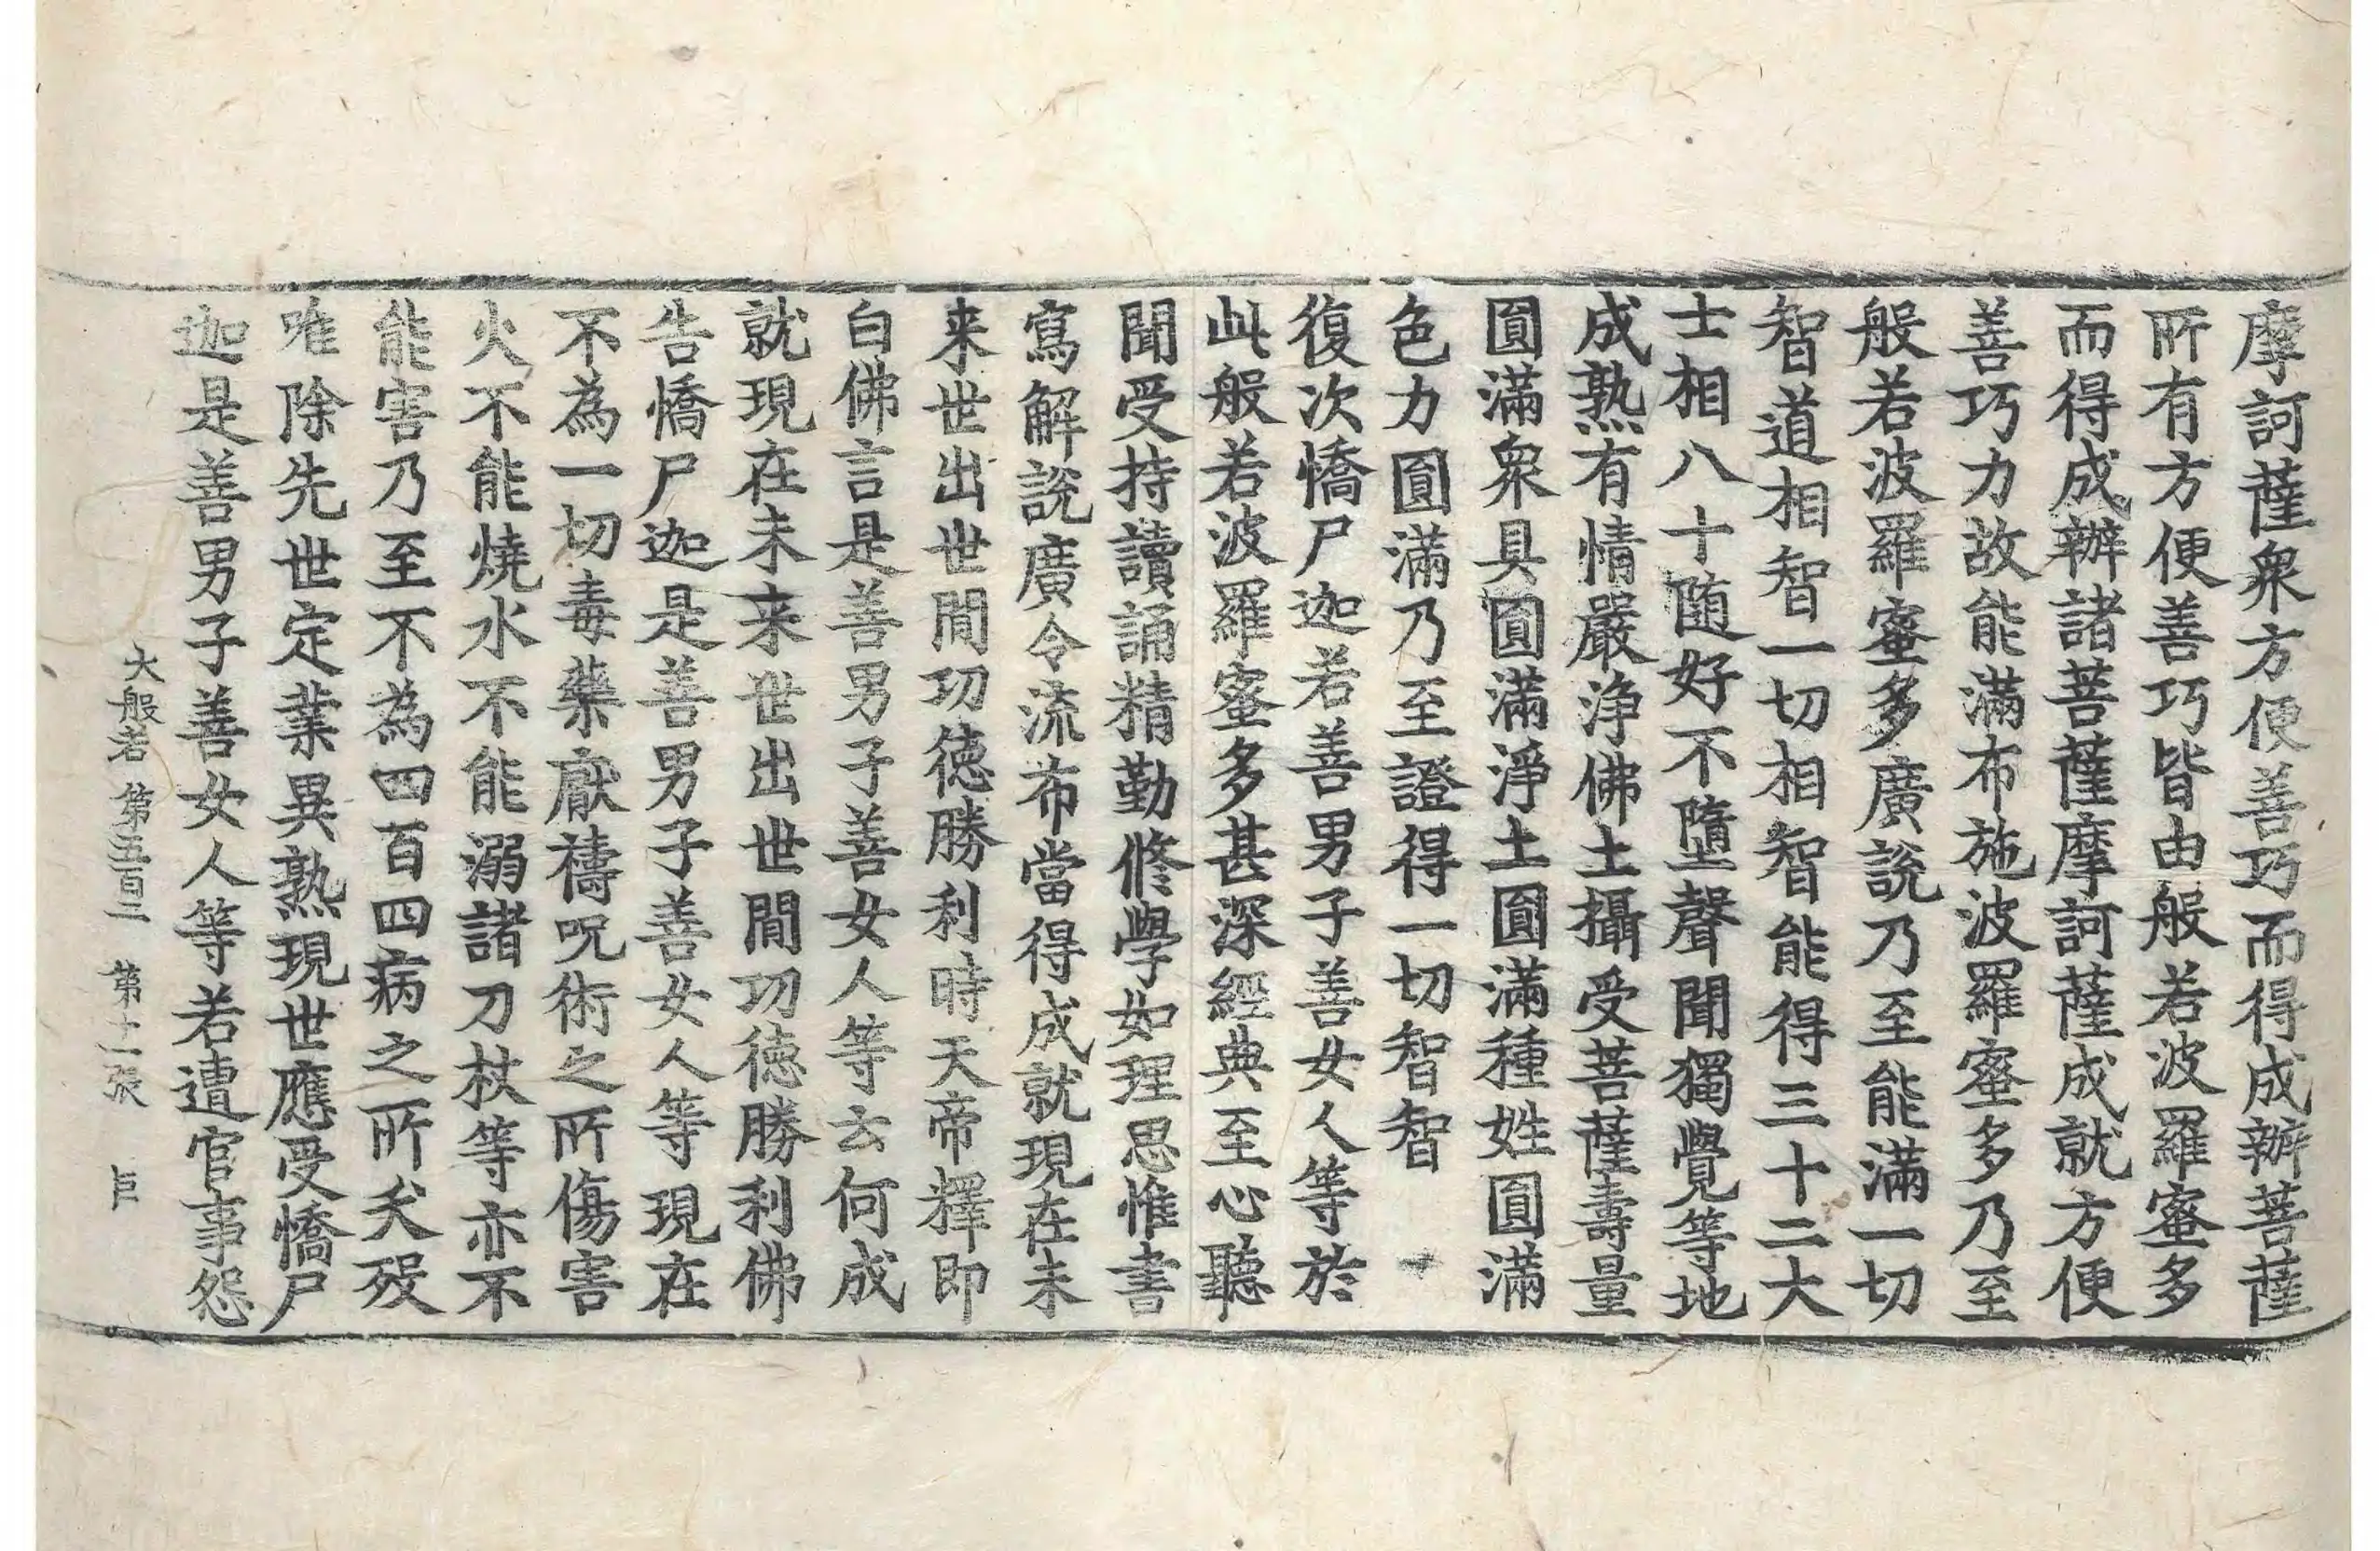 摩訶薩衆方便善巧而得成辦菩薩
所有方便善巧皆由般若波羅蜜多
而得成辦諸菩薩摩訶薩成就方便
善巧力故能滿布施波羅蜜多乃至
般若波羅蜜多廣說乃至能滿一切
智道相智一切相智能得三十二大
士相八十随好不墮聲聞獨覺等地
成熟有情嚴淨佛土攝受菩薩壽量
圓滿衆具圓滿淨土圓滿種姓圓滿
色力圓滿乃至證得一切智智
復次憍尸迦若善男子善女人等於
此般若波羅蜜多甚深經典至心聽
聞受持讀誦精勤修學如理思惟書
寫解說廣令流布當得成就現在未
来世出世間功德勝利時天帝釋即
白佛言是善男子善女人等云何成
就現在未来世出世間功德勝利佛
告憍尸迦是善男子善女人等現在
不為一切毒藥厭禱呪術之所傷害
火不能燒水不能溺諸刀杖等亦不
能害乃至不為四百四病之所夭殁
唯除先世定業異熟現世應受憍尸
迦是善男子善女人等若遭官事怨
大般若 第五百二 第十一張 巨